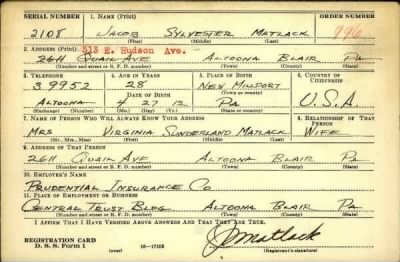 SERIAL NUMBER 1. NAME (Print) ORDER NUMBER
2108 JACOB SYLVESTER MATLACK 996
(First) (Middle) (Last)
2. ADDRESS (Print) 513 E. Hudson Ave.
2611 QUAIL AVE ALTOONA BLAIR PA
(Number and street or R. F. D. number) (Town) (County) (State)
3. TELEPHONE 4. AGE IN YEARS 5. PLACE OF BIRTH 6. COUNTRY OF CITIZENSHIP
39952 28 NEW MILLPORT
DATE OF BIRTH (Town or county)
ALTOONA 4 27 12 PA U.S.A.
(Exchange) (Number) (Mo.) (Day) (Yr.) (State or country)
7. NAME OF PERSON WHO WILL ALWAYS KNOW YOUR ADDRESS 8. RELATIONSHIP OF THAT PERSON
MRS VIRGINIA SUNDERLAND MATLACK WIFE
(Mr., Mrs., Miss) (First) (Middle) (Last)
9. ADDRESS OF THAT PERSON
2611 QUAIL AVE ALTOONA BLAIR PA
(Number and street or R. F. D. number) (Town) (County) (State)
10. EMPLOYER'S NAME
PRUDENTIAL INSURANCE CO
11. PLACE OF EMPLOYMENT OR BUSINESS
CENTRAL TRUST BLDG ALTOONA BLAIR PA
(Number and street or R. F. D. number) (Town) (County) (State)
I AFFIRM THAT I HAVE VERIFIED ABOVE ANSWERS AND THAT THEY ARE TRUE.
REGISTRATION CARD
D. S. S. FORM 1 16—17105 Matlack